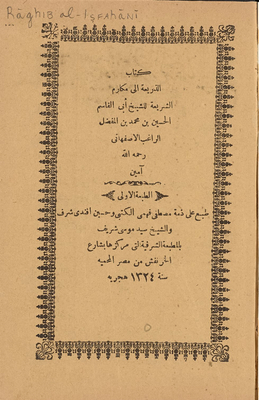 Rāghib al-Iṣfahānī
كتاب
الذريعة الى مكارم
الشريعة للشيخ أبى القاسم
الحسين بن محمد بن المفضل
الراغب الاصفهانى
رحمه الله
آمين
الطبعة الاولى
طبع على ذمة مصطفى فهمى الكتبى وحسين افندى شرف
والشيخ سيد موسى شريف
بالمطبعة الشرفية التى مركزها بشارع
الخرنفش من مصر المحميه
سنة ١٣٢٤ هجريه